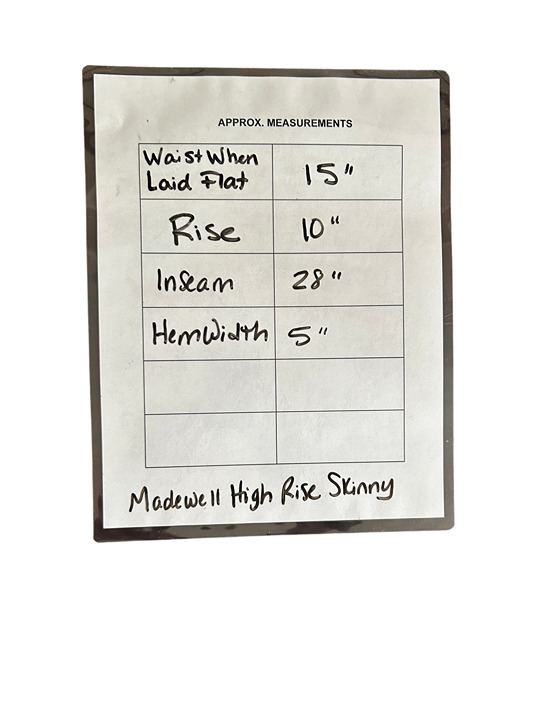 APPROX. MEASUREMENTS
Waist When
Laid Flat
15"
Rise
10"
Inseam
28"
Hem Width
5"
Madewell High Rise Skinny